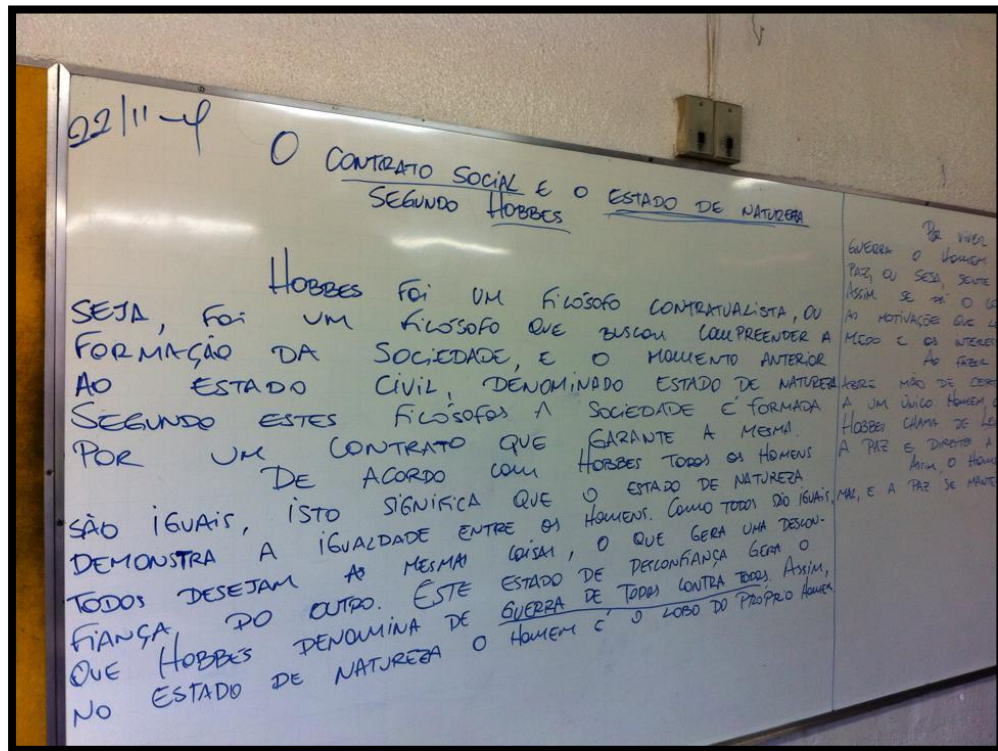 22/11
O CONTRATO SOCIAL E O ESTADO DE NATUREZA
SEGUNDO HOBBES
HOBBES FOI UM FILÓSOFO CONTRATUALISTA, OU
SEJA, FOI UM FILÓSOFO QUE BUSCOU COMPREENDER A
FORMAÇÃO DA SOCIEDADE, E O MOMENTO ANTERIOR
AO ESTADO CIVIL, DENOMINADO ESTADO DE NATUREZA
SEGUNDO ESTES FILÓSOFOS A SOCIEDADE É FORMADA
POR UM CONTRATO QUE GARANTE A MESMA.
DE ACORDO COM HOBBES TODOS OS HOMENS
SÃO IGUAIS, ISTO SIGNIFICA QUE O ESTADO DE NATUREZA
DEMONSTRA A IGUALDADE ENTRE OS HOMENS. COMO TODOS SÃO IGUAIS,
TODOS DESEJAM AS MESMAS COISAS, O QUE GERA UMA DESCON-
FIANÇA DO OUTRO. ESTE ESTADO DE DESCONFIANÇA GERA O
QUE HOBBES DENOMINA DE GUERRA DE TODOS CONTRA TODOS. ASSIM,
NO ESTADO DE NATUREZA O HOMEM É O LOBO DO PRÓPRIO HOMEM
POR VIVER
GUERRA O HOMEM
PAZ, OU SEJA, SENTE
ASSIM SE DÁ O
AS MOTIVAÇÕES QUE
MEDO E OS
AO FAZER
ABRE MÃO DE
A UM ÚNICO HOMEM
HOBBES CHAMA DE
A PAZ E DIREITO A
ASSIM, O
MAL, E A PAZ SE